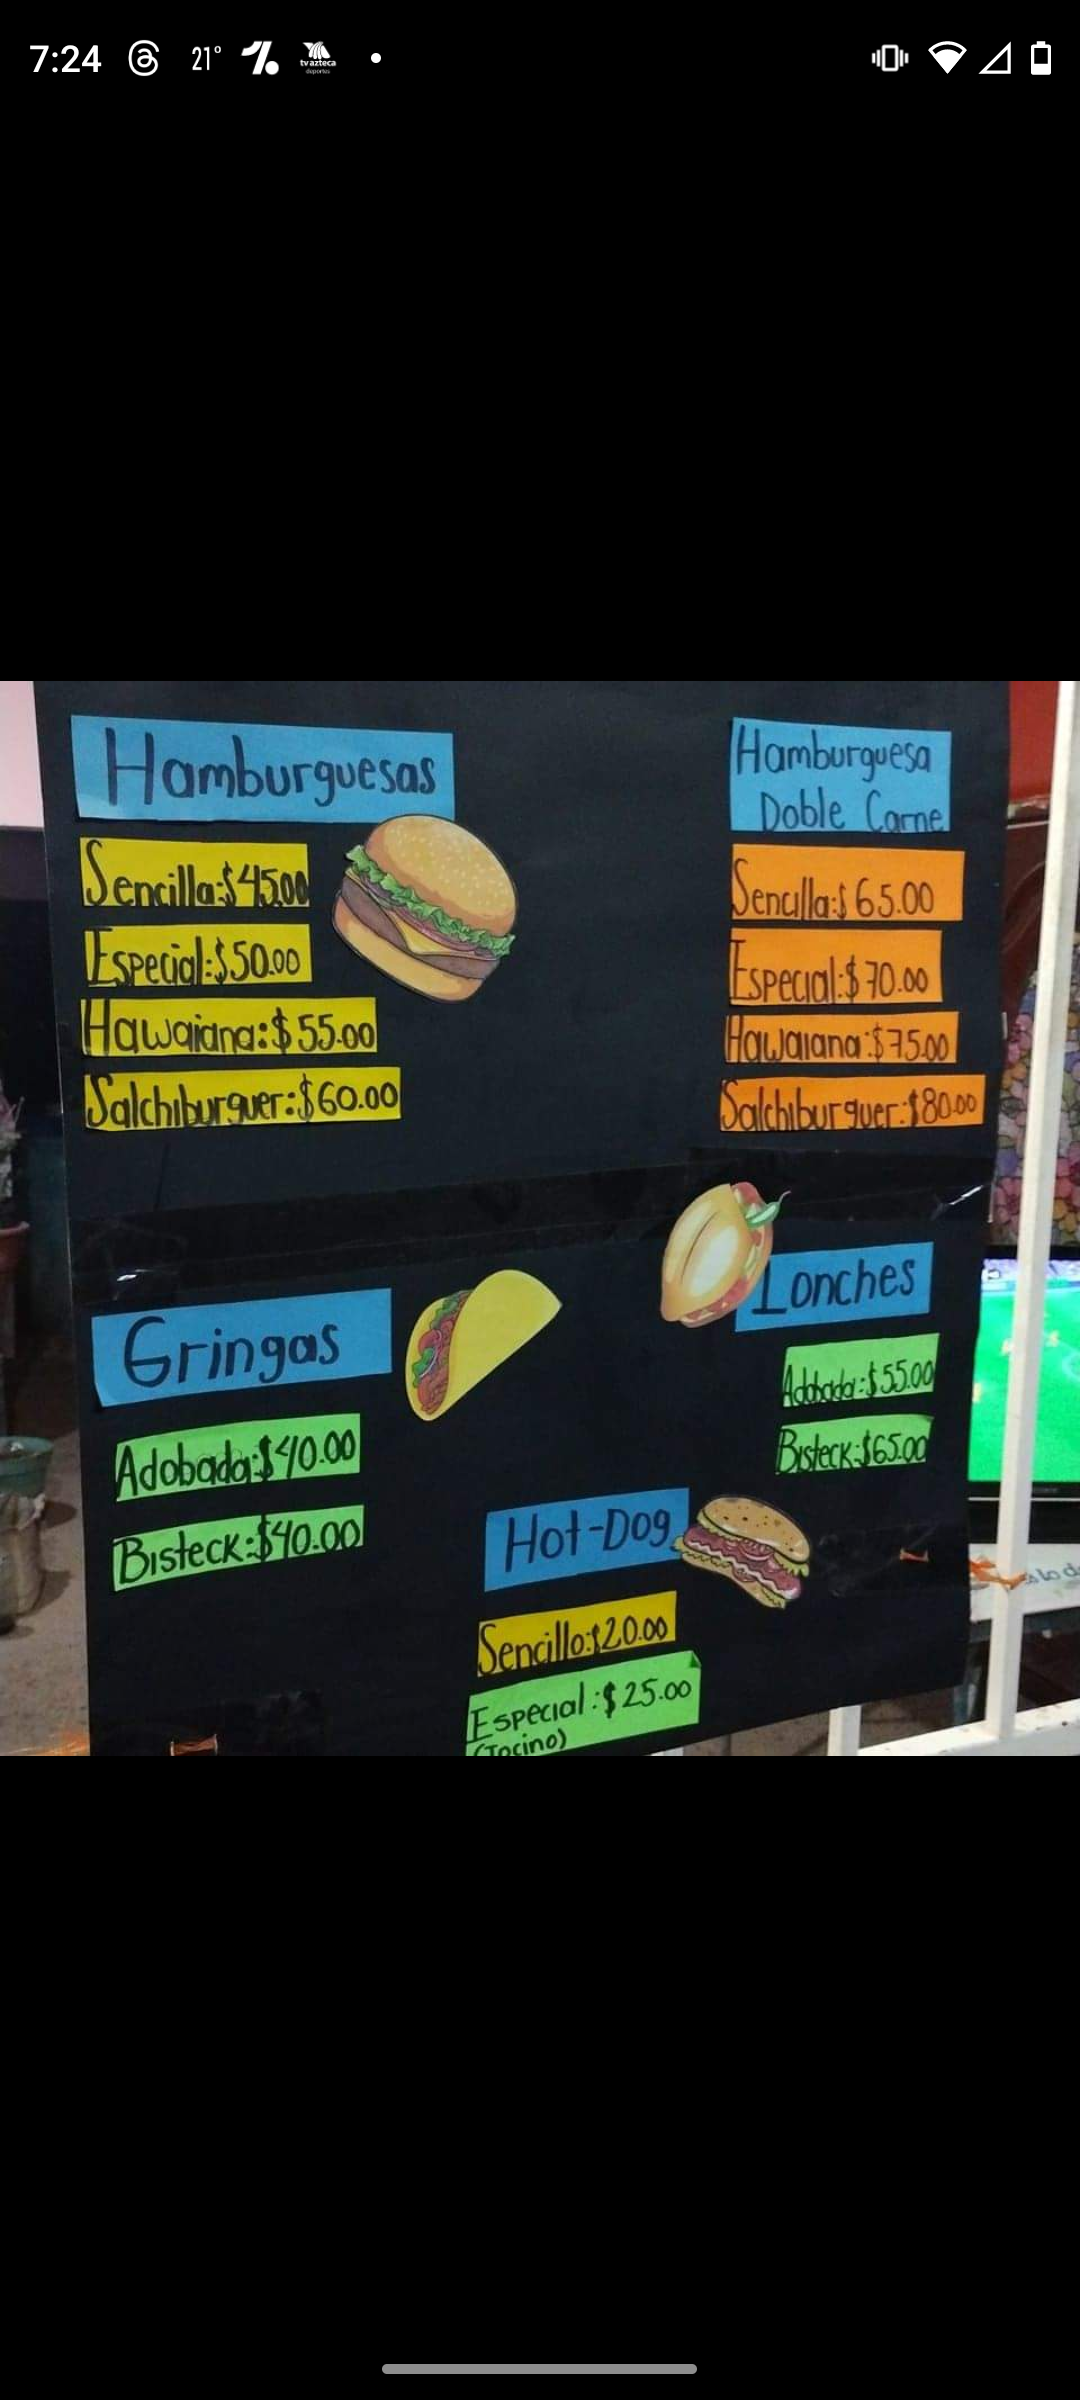 7:24
21°
tv azteca
deportes
Hamburguesas
Sencilla:$45.00
Especial:$50.00
Hawaiana:$55.00
Salchiburguer:$60.00
Hamburguesa
Doble Carne
Sencilla:$65.00
Especial:$70.00
Hawaiana:$75.00
Salchiburguer:$80.00
Gringas
Adobada:$40.00
Bisteck:$40.00
Lonches
Adobada:$55.00
Bisteck:$65.00
Hot-Dog
Sencillo:$20.00
Especial:$25.00
(Tocino)